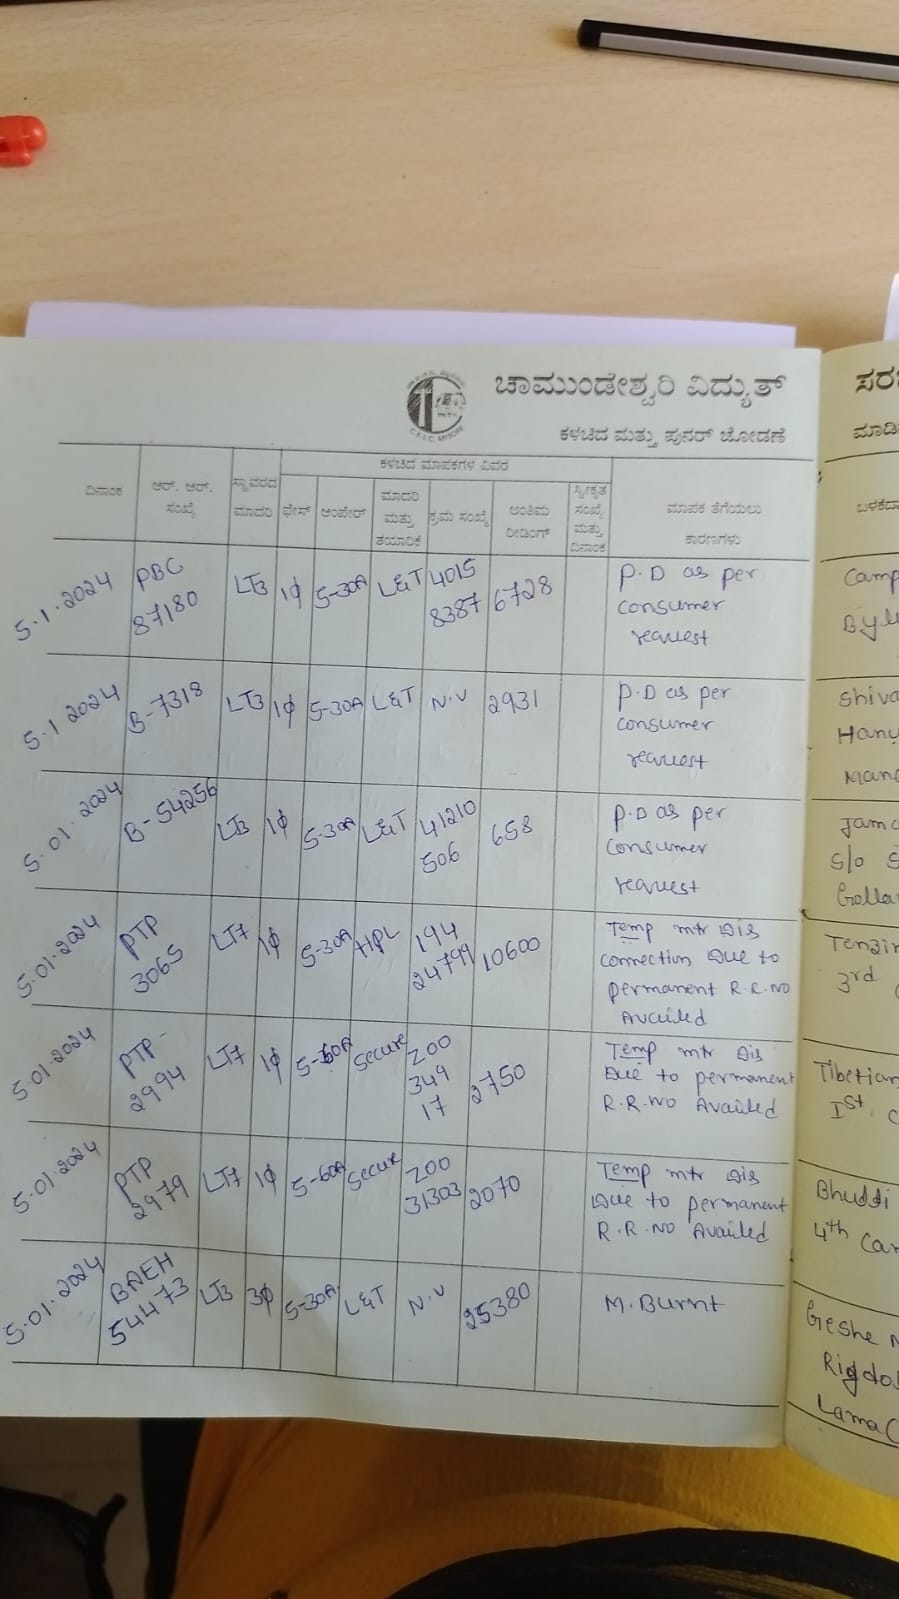 ಚಾಮುಂಡೇಶ್ವರಿ ವಿದ್ಯುತ್
C.E.S.C. MYSORE
ಕಳಚಿದ ಮತ್ತು ಪುನರ್ ಜೋಡಣೆ
ಮಾಡಿ
ದಿನಾಂಕ
ಆರ್. ಆರ್.
ಸಂಖ್ಯೆ
ಸ್ಥಾವರದ
ಮಾದರಿ
ಕಳಚಿದ ಮಾಪಕಗಳ ವಿವರ
ಫೇಸ್
ಆಂಪೇರ್
ಮಾದರಿ
ಮತ್ತು
ತಯಾರಿಕೆ
ಕ್ರಮ ಸಂಖ್ಯೆ
ಅಂತಿಮ
ರೀಡಿಂಗ್
ಸ್ವೀಕೃತ
ಸಂಖ್ಯೆ
ಮತ್ತು
ದಿನಾಂಕ
ಮಾಪಕ ತೆಗೆಯಲು
ಕಾರಣಗಳು
5.1.2024
PBC
87180
LT3
1φ
5-30A
L&T
4015
8387
6728
P.D as per
consumer
request
Camp
5.1 2024
B-7318
LT3
1φ
5-30A
L&T
N.V
2931
P.D as per
consumer
request
Shiva
Hanu
5.01.2024
B-54256
LT3
1φ
5-30A
L&T
41210
506
658
P.D as per
consumer
request
S/o S
Golla
5.01.2024
PTP
3065
LT7
1φ
5-30A
HPL
194
24799
10600
Temp mtr Dis
connection Due to
permanent R.R.NO
Availed
Tenzin
3rd
5.01.2024
PTP-
2994
LT7
1φ
5-60A
Secure
Z00
349
17
2750
Temp mtr Dis
Due to permanent
R.R.NO Availed
Tibetian
Ist C
5.01.2024
PTP
2979
LT7
1φ
5-60A
Secure
Z00
31303
2070
Temp mtr Dis
Due to permanent
R.R.NO Availed
Bhuddi
4th Cam
5.01.2024
BAEH
54473
LT3
3φ
5-30A
L&T
N.V
25380
M.Burnt
Geshe
Lama